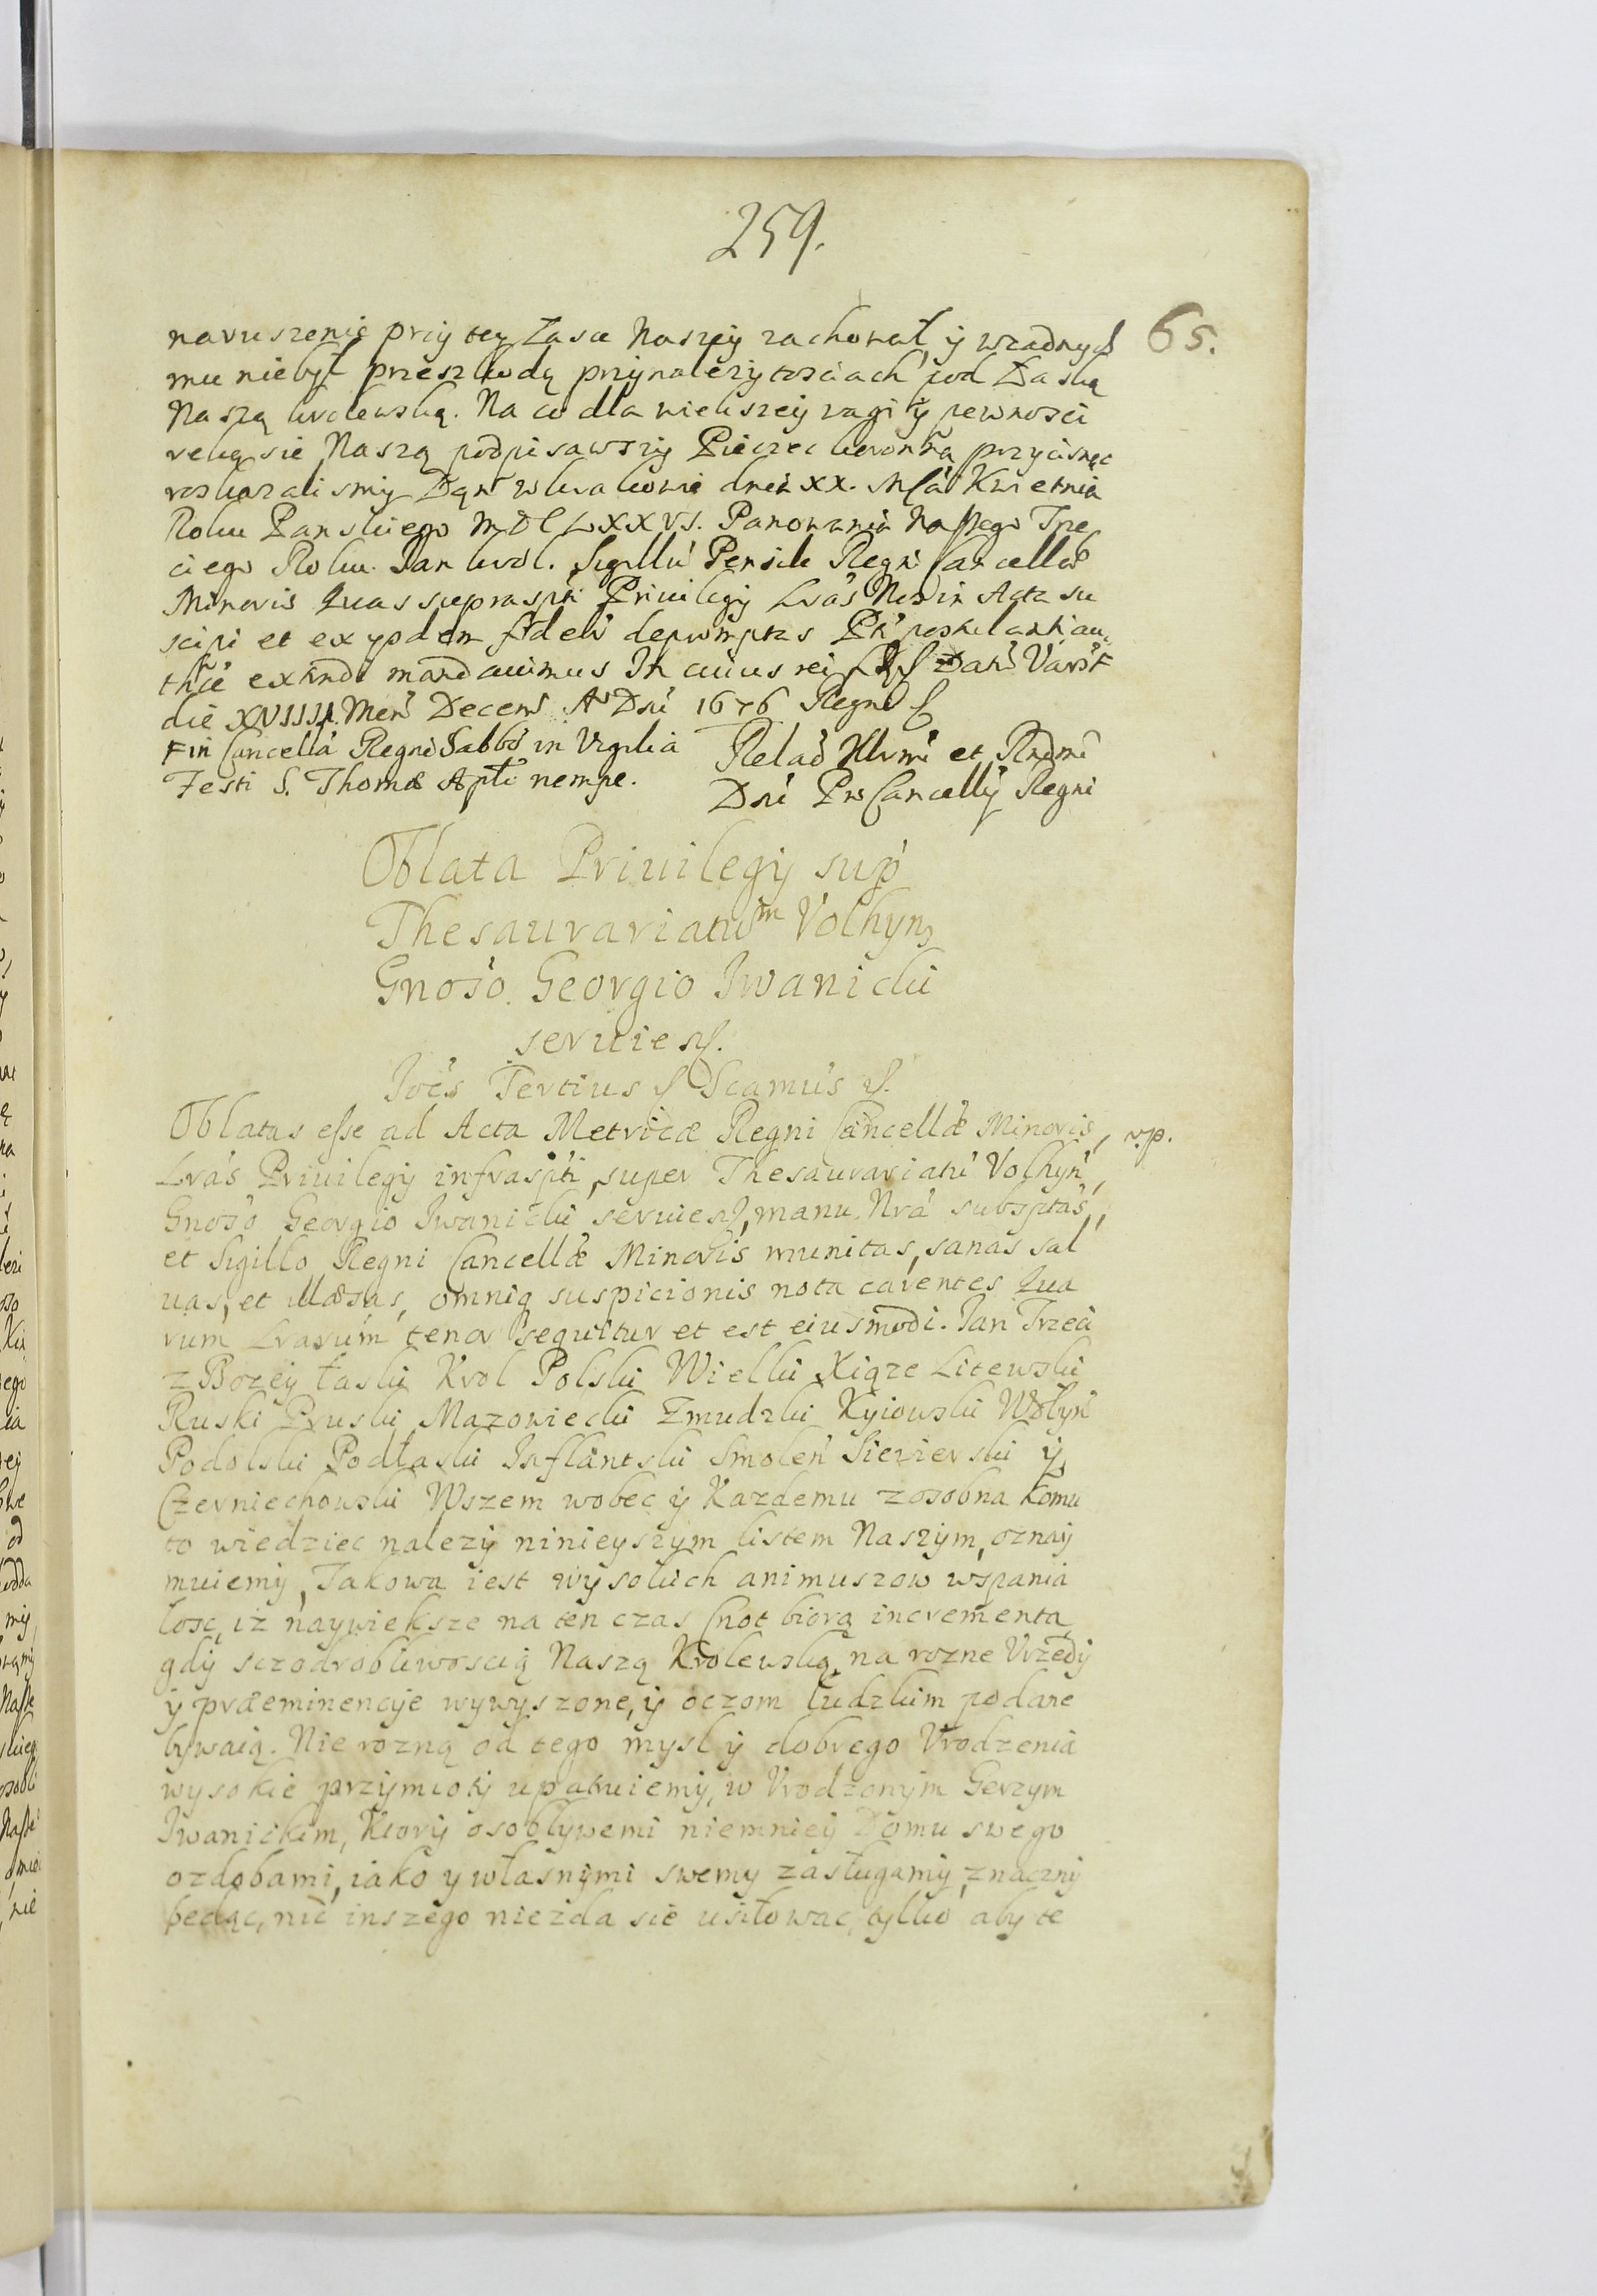 259.
65.
naruszenie przy tey Łasce Naszey zachował, y w żadnych
mu niebył przeszkodą przynależytościach pod Łaską
Naszą krolewską. Na co dla wiekszey wagi y pewnosci
ręką sie Naszą podpisawszy Pieczec koronną przycisnąc
roskazali smy Dąn w Krakowie dnia XX. Msca Kwietnia
Roku Panskiego MDCLXXVI. Panowania Naszego Trze
ciego Roku. Jan krol. Sigillũ Pensile Regni Cancellæ
Minoris Quas suprasptũ Privilegÿ Lrãs Nos in Acta su
scipi et ex ysdem fideli depromptas Pti postulanti au
thcẽ extradi mandavimus In cuius rei Dat Vars
die XVIIII Mens Decem A Dni 1676 Regni
F in Cancella Regni Sabbo in Vigilia
Festi S. Thomæ Apti nempe.
Relao Illrmi et Rndmi
Dni Pro Cancellÿ Regni
Oblata Privilegÿ sup
Thesaurariatum Volhyn
Gnoso. Georgio Iwanicki
serviens.
Joes Tertius Scamus
Oblatas esse ad Acta Metricæ Regni Cancellæ Minoris, v.p.
Lras Privilegÿ infraspti, super Thesaurariatu Volhyn
Gnoso Georgio Iwanicki serviens, manu Nra subsptas,
et Sigillo Regni Cancellæ Minoris munitas, sanas sal
vas, et illæsas, omniq suspicionis nota carentes Qua
rum Lrarum tenor sequitur et est eiusmodi. Jan Trzeci
z Bozey łaski Krol Polski Wielki Xiąze Litewski
Ruski Pruski Mazowiecki Zmudzki Kyiowski Wołyn
Podolski Podłaski Inflantski Smolen Siewierski y
Czerniechowski Wszem wobec y Kazdemu zosobna komu
to wiedziec nalezy ninieyszym listem Naszym, oznay
muiemy, Takowa iest wysokich animuszow wspania
łosc, iz naywieksze na ten czas Cnot biorą incrementa
gdy sczodrobliwoscią Naszą Krolewską, na rozne Vrzedy
y præeminencye wywyszone, y oczom ludzkim podane
bywaią. Nie rozną od tego mysl y dobrego Vrodzenia
wysokie przymioty upatruiemy, w Vrodzonym Gerzym
Iwanickim, Ktory osoblywemi niemniey Domu swego
ozdobami, iako y własnymi swemy zasługamy, znaczny
bedąc, nic inszego niezda sie usiłowac, tylko aby te